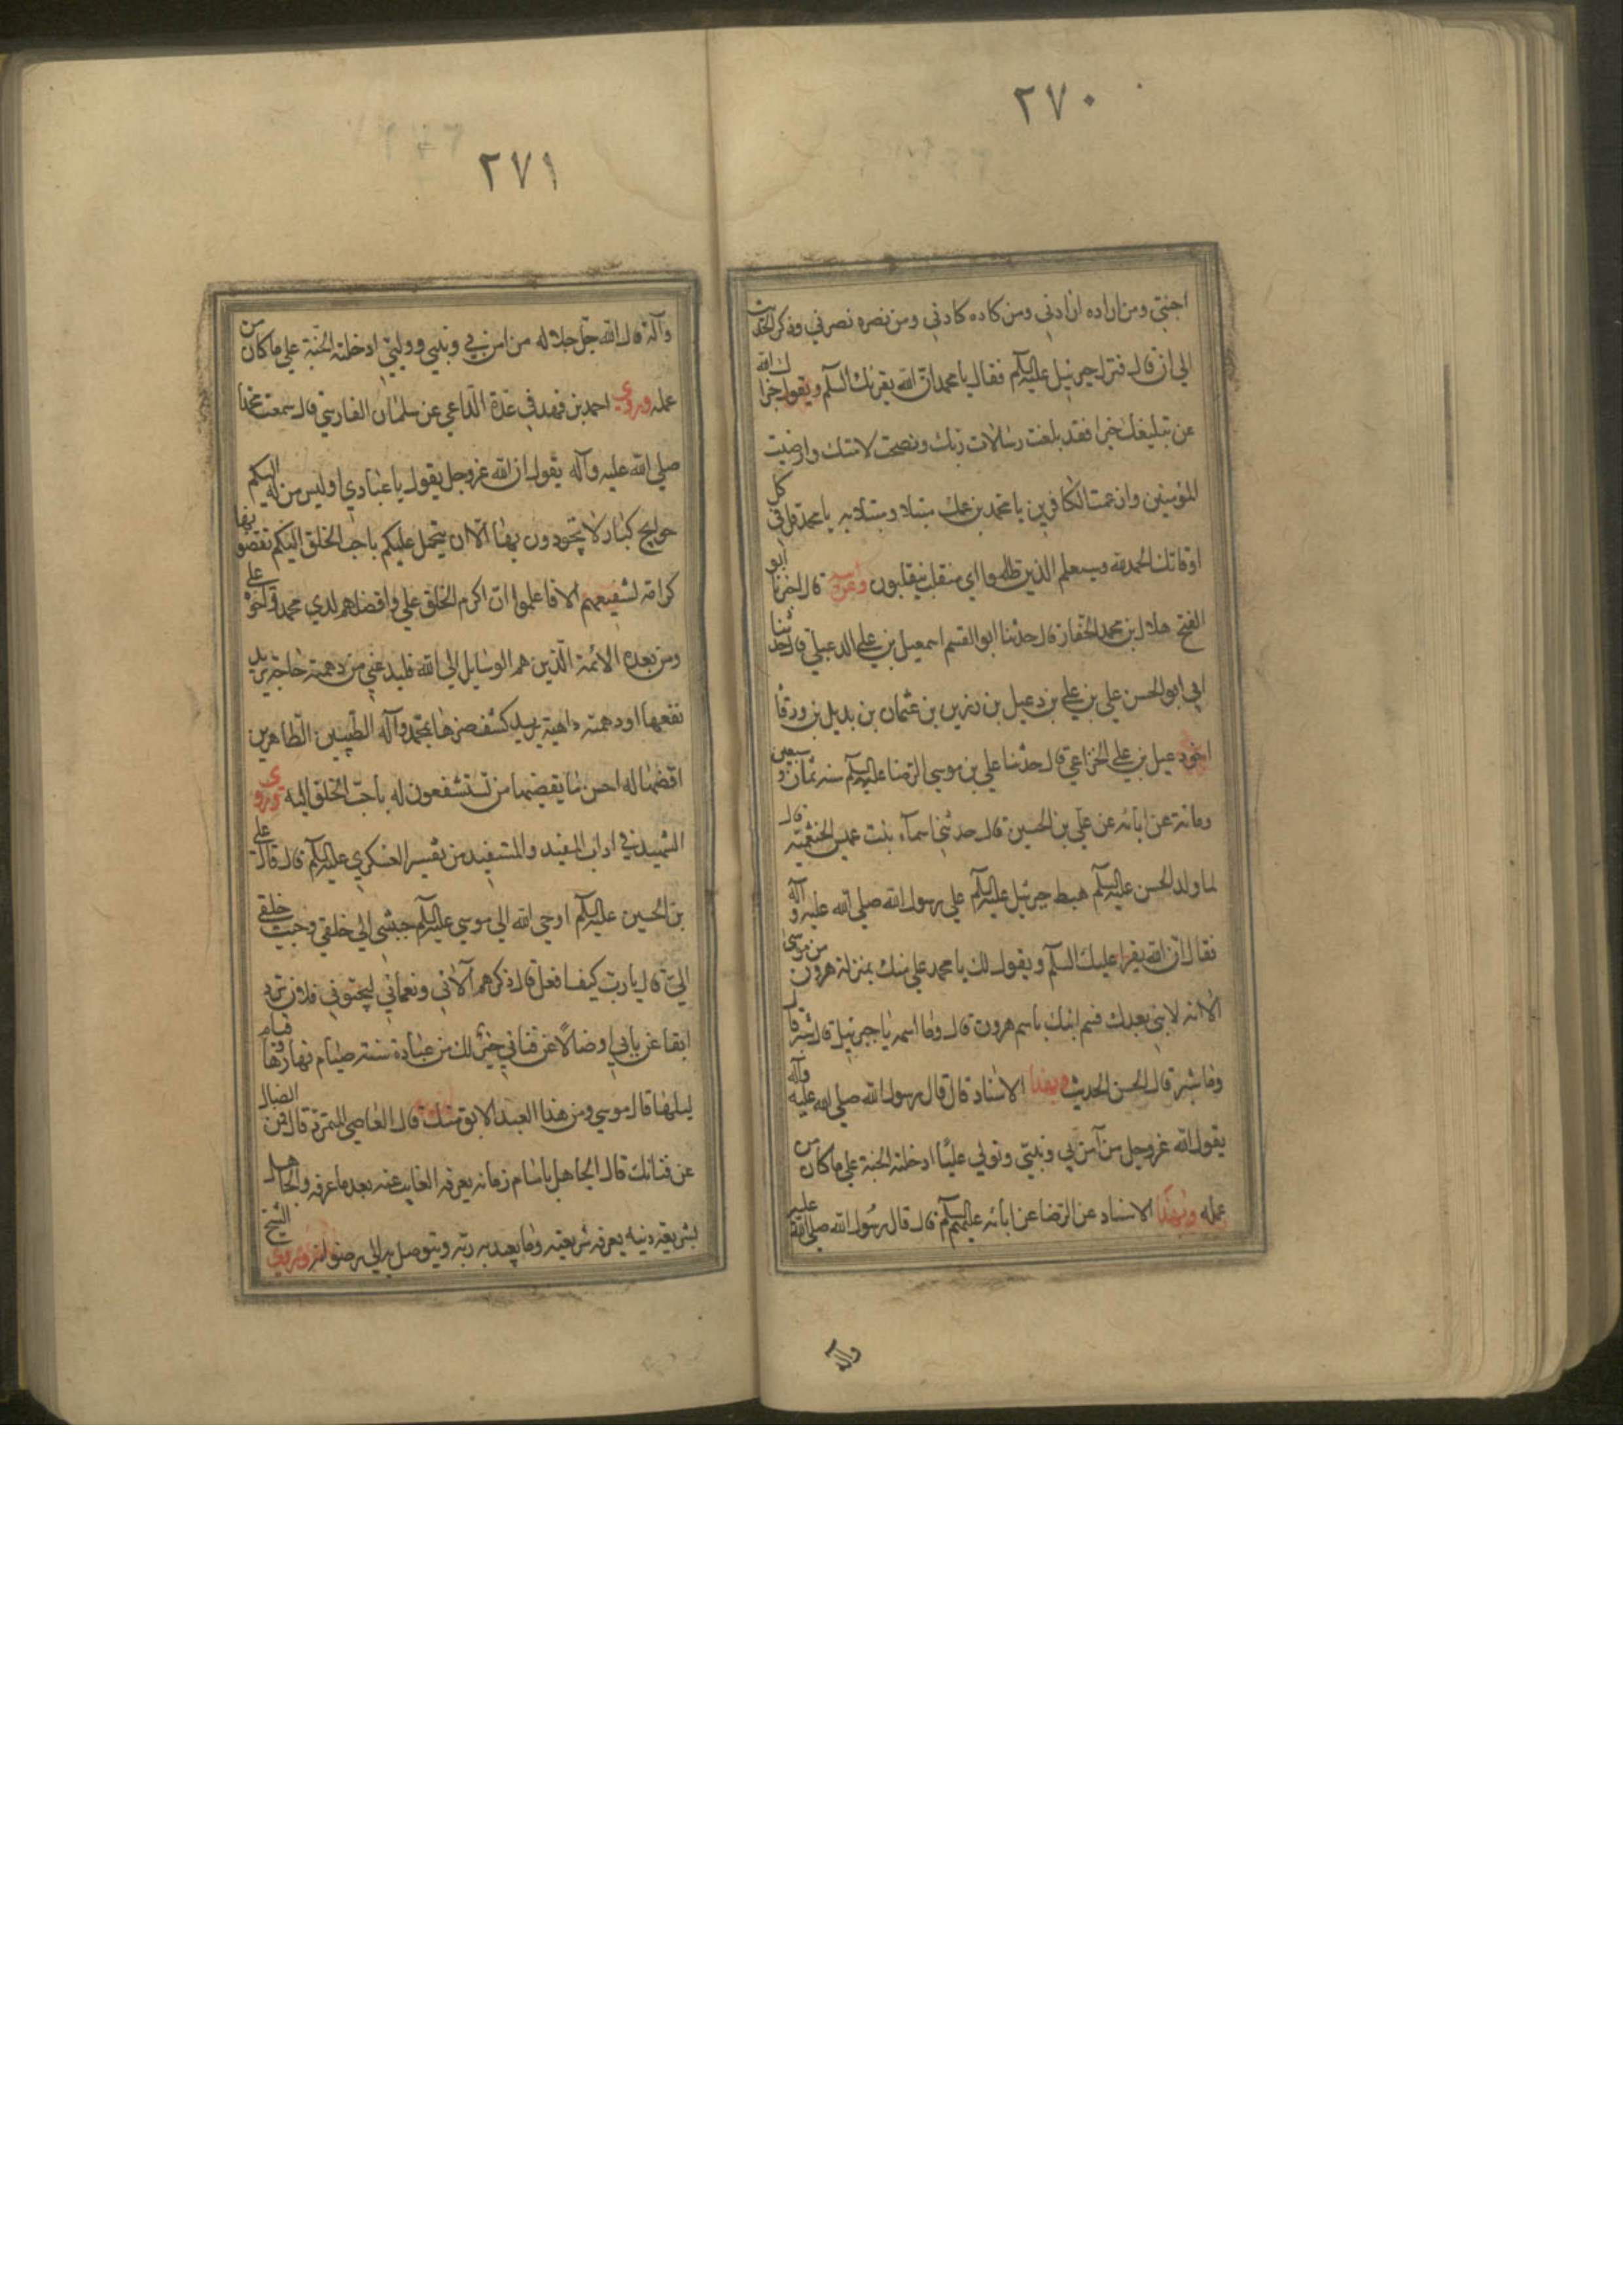 ٢٧٠
اجنبي ومن اراده ارادني ومن كاده كادني ومن نصره نصرني وذكر الحديث
الي ان قال فنزل جبرئيل عليه السلم فقال يا محمد ان الله يقرئك السلم ويقول جزاك الله
عن تبليغك خيرا فقد بلغت رسالات ربك ونصحت لامتك وارضيت
المؤمنين وارغمت الكافرين يا محمد ان ابن عمك مبتلا ومبتلا به يا محمد قل في كل
اوقاتك الحمد لله وسيعلم الذين ظلموا اي منقلب ينقلبون وعنه قال اخبرنا ابو
الفتح هلال بن محمد الحفار قال حدثنا ابو القسم اسمعيل بن علي الدعبلي قال حدثنا
ابي ابو الحسن علي بن علي بن دعبل بن رزين بن عثمان بن بديل بن ورقا
اخو دعبل بن علي الخزاعي قال حدثنا علي بن موسي الرضا عليه السلم سنة ثمان وسبعين
ومائة عن ابائه عن علي بن الحسين قال حدثتني اسماء بنت عميس الخثعمية قال
لما ولد الحسن عليه السلم هبط جبرئيل عليه السلم علي رسول الله صلي الله عليه وآله
فقال ان الله يقرا عليك السلم ويقول لك يا محمد علي منك بمنزلة هرون من موسي
الا انه لا نبي بعدك فسم ابنك باسم هرون قال وما اسمه يا جبرئيل قال شبر قال
وما شبر قال الحسن الحديث وبهذا الاسناد قال قال رسول الله صلي الله عليه وآله
يقول الله عزوجل من آمن بي وبنبيي وتولي عليا ادخلته الجنة علي ما كان من
عمله وبهذا الاسناد عن الرضا عن ابائه عليهم السلم قال قال رسول الله صلي الله عليه
وآله
٢٧١
وآله قال الله جل جلاله من امن بي وبنبيي ووليي ادخلته الجنة علي ما كان من
عمله وروي احمد بن فهد في عدة الداعي عن سلمان الفارسي قال سمعت محمدا
صلي الله عليه وآله يقول ان الله عزوجل يقول يا عبادي اوليس من له اليكم
حوايج كبار لا تجودون بها الا ان يتحمل عليكم باحب الخلق اليكم تقضونها
كرامة لشفيعهم الا فاعلموا ان اكرم الخلق علي وافضلهم لدي محمد واخوه علي
ومن بعده الائمة الذين هم الوسايل الي الله فليدعني من دهمته حاجة يريد
نفعها او دهمته داهية يريد كشف ضرها بمحمد وآله الطيبين الطاهرين
اقضها له احسن ما يقضيها من تستشفعون له باحب الخلق اليه وروي
الشهيد في اداب المفيد والمستفيد من تفسير العسكري عليه السلم قال قال علي
بن الحسين عليه السلم اوحي الله الي موسي عليه السلم حببني الي خلقي وحبب خلقي
الي قال يا رب كيف افعل قال ذكرهم آلائي ونعمائي ليحبوني فلان ترد
ابقا عن بابي او ضالا عن فنائي خير لك من عبادة سنة صيام نهارها وقيام
ليلها قال موسي ومن هذا العبد الابق منك قال العاصي المتمرد قال فمن الضال
عن فنائك قال الجاهل بامام زمانه يعرفه الغايب عنه بعد ما عرفه والجاهل
بشريعة دينه يعرفه شريعته وما يعبد به ربه ويتوصل به الي مرضوانه وروي الشيخ